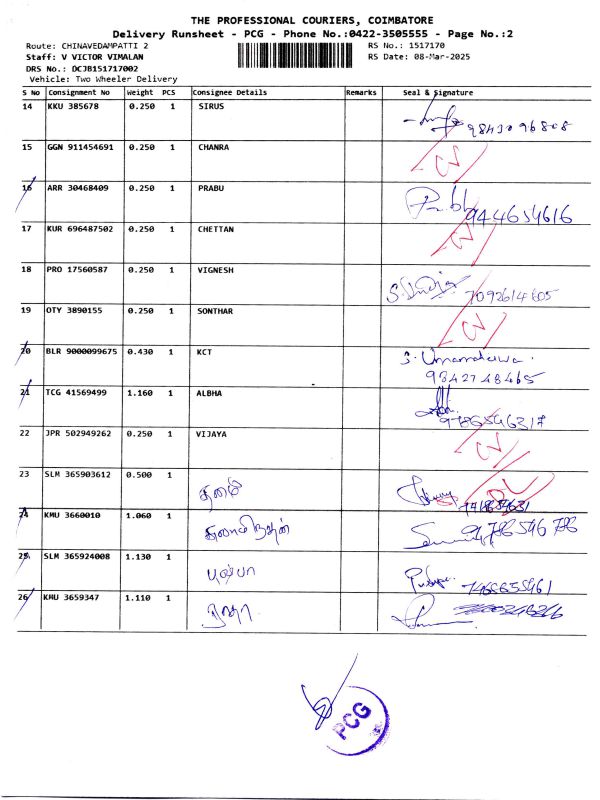 THE PROFESSIONAL COURIERS, COIMBATORE
Delivery Runsheet - PCG - Phone No.:0422-3505555 - Page No.:2
Route: CHINAVEDAMPATTI 2 RS No.: 1517170
Staff: V VICTOR VIMALAN RS Date: 08-Mar-2025
DRS No.: DCJB151717002
Vehicle: Two Wheeler Delivery
S No Consignment No Weight PCS Consignee Details Remarks Seal & Signature
14 KKU 385678 0.250 1 SIRUS 9843096808
15 GGN 911454691 0.250 1 CHANRA
16 ARR 30468409 0.250 1 PRABU 944654616
17 KUR 696487502 0.250 1 CHETTAN
18 PRO 17560587 0.250 1 VIGNESH 7092614605
19 OTY 3890155 0.250 1 SONTHAR
20 BLR 9000099675 0.430 1 KCT
9842748465
21 TCG 41569499 1.160 1 ALBHA
22 JPR 502949262 0.250 1 VIJAYA
23 SLM 365903612 0.500 1
24 KMU 3660010 1.060 1
25 SLM 365924008 1.130 1 புஷ்பா
26 KMU 3659347 1.110 1
PCG